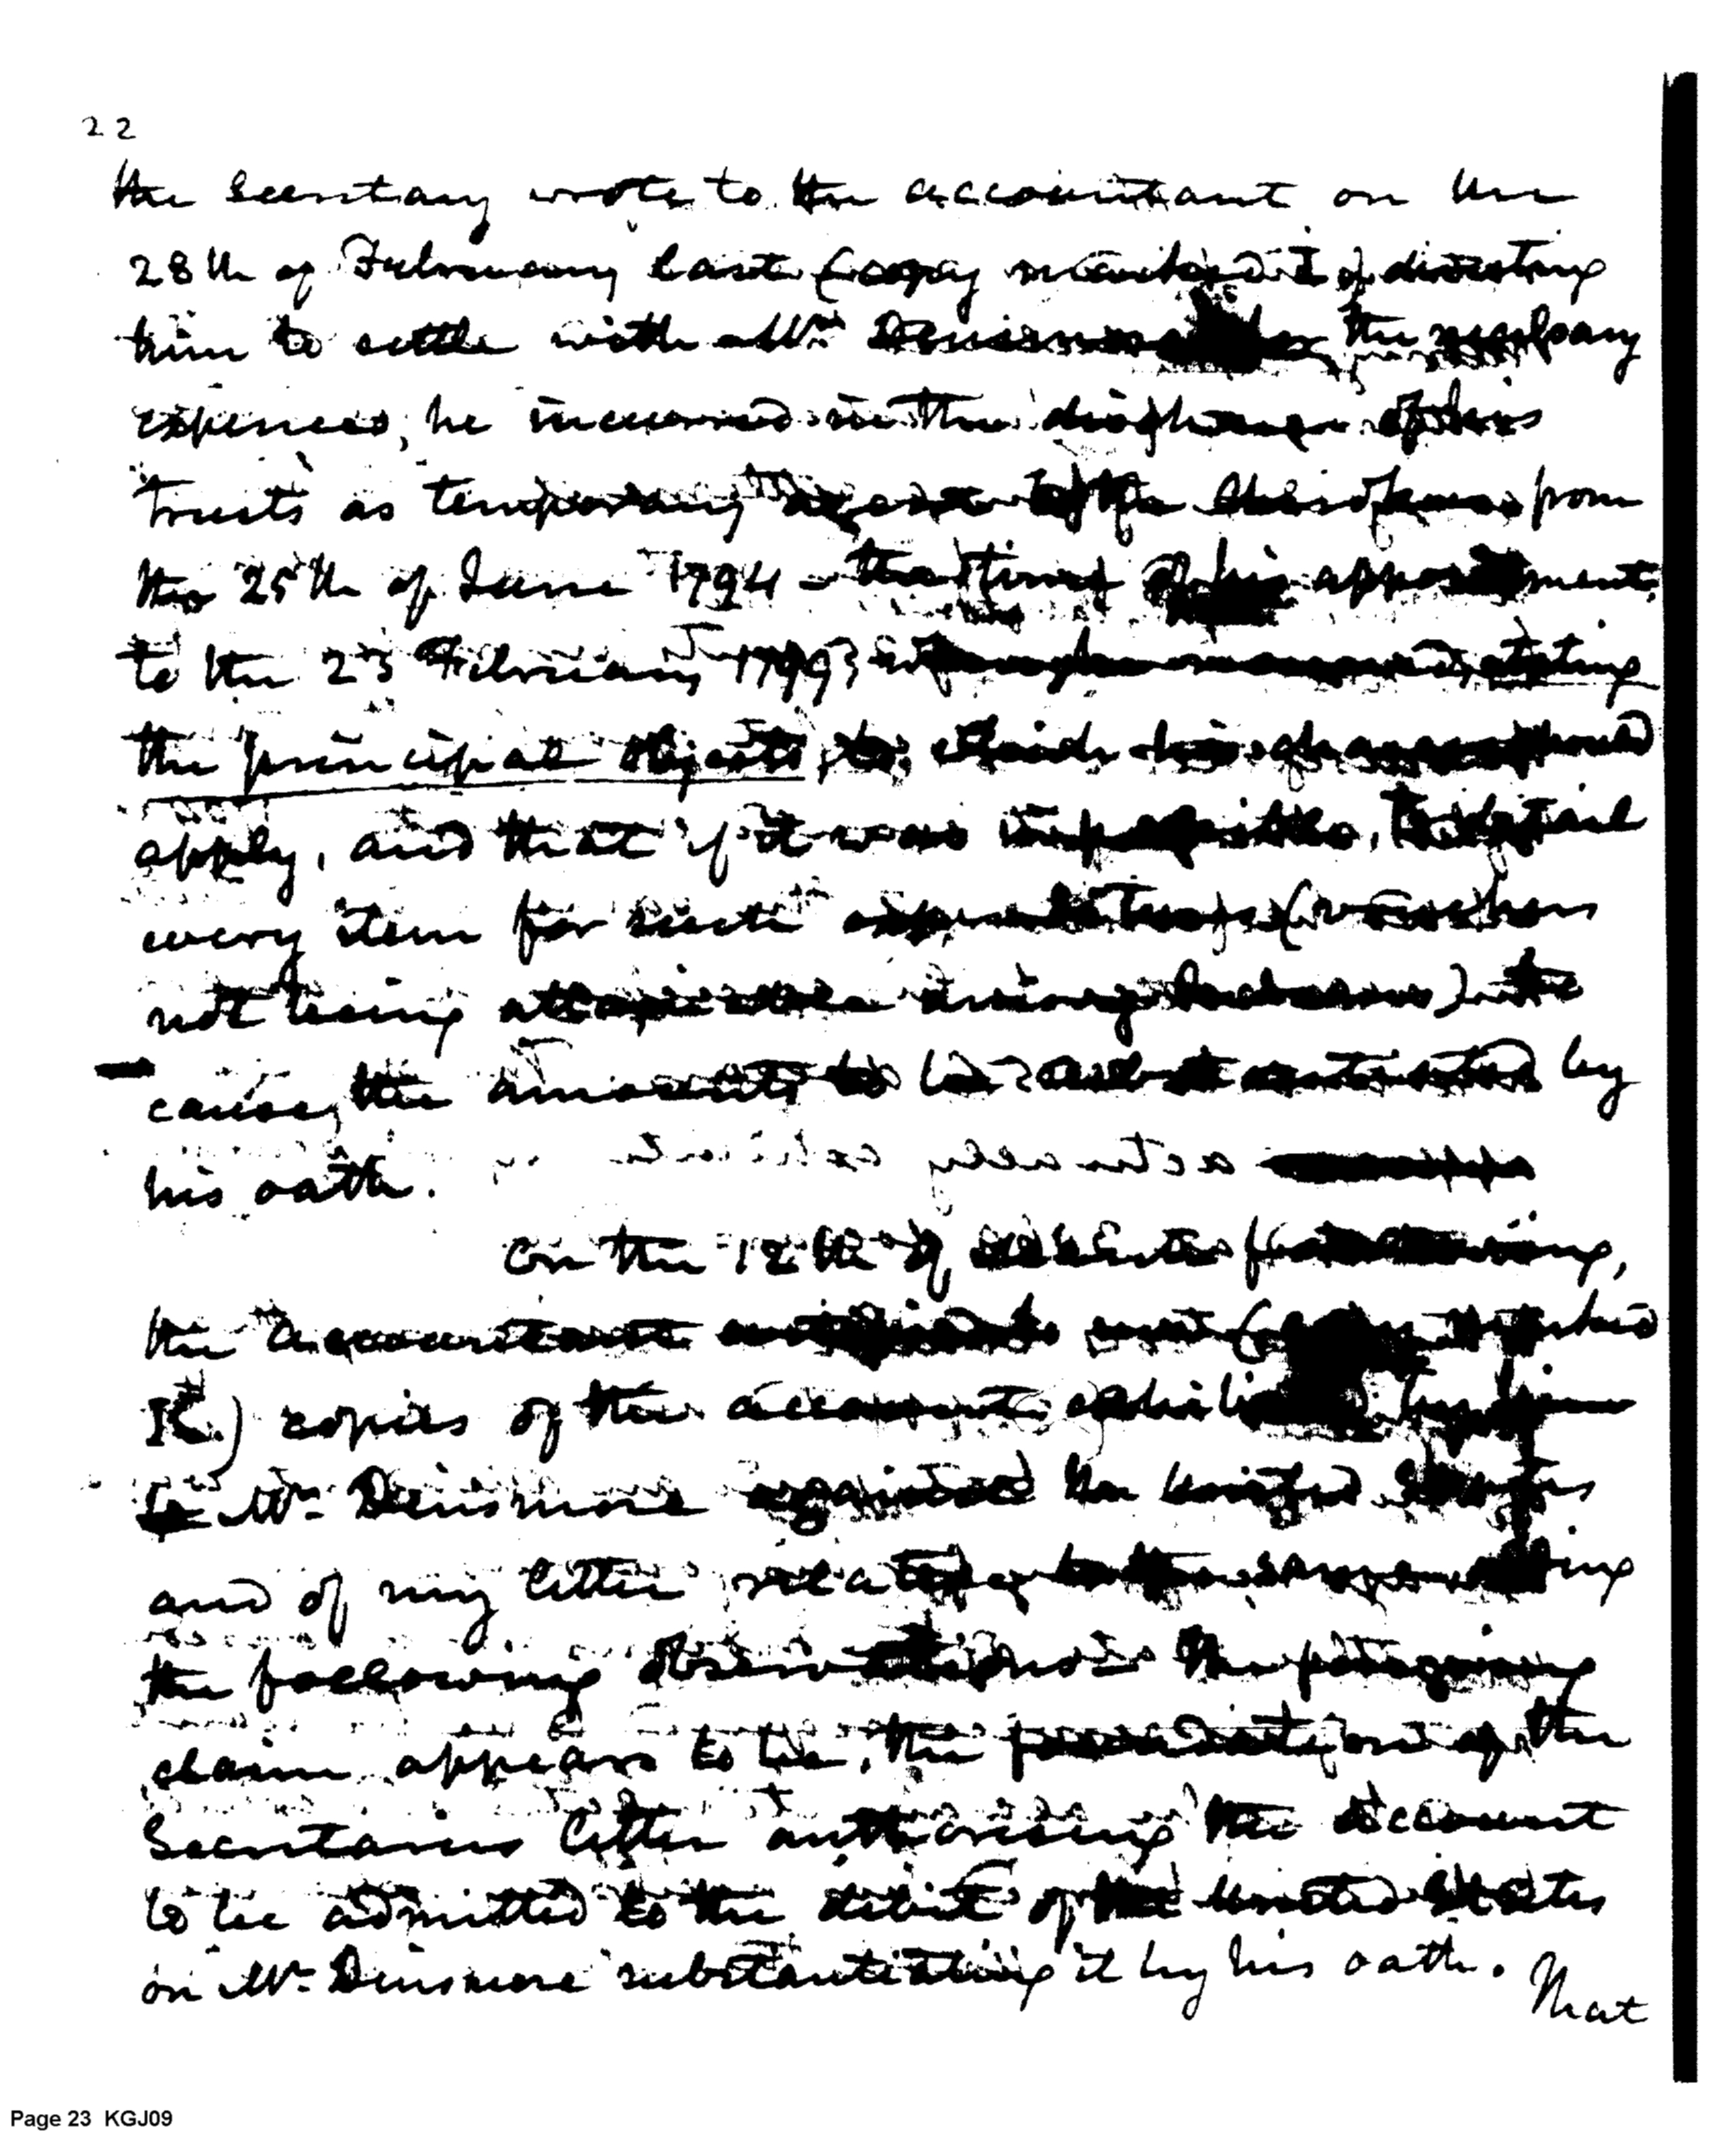 22
the Secretary wrote to the accountant on the
28th of February last (copy marked I) directing
him to settle with Mr. Dinsmore the necessary
expences, he incurred in the discharge of his
trusts as temporary agent to the from
the 25th of June 1794 the time of his appointment,
to the 23 February 1799 stating
the principal objects to which his charges should
apply, and that if it was impossible, to detail
every item for such expenditures (vouchers
not being attainable among Indians) to
cause, the amounts to be substantiated by
his oath.
On the 12th of following,
the accountant sent (copy marked
K.) copies of the account exhibited by him
to Mr. Dinsmore against the United States
and of my letter relating to the same
the following observations The foregoing
claim appears to be, the foundation of the
Secretaries letter authorising the account
to be admitted to the debit of the United States
on Mr. Dinsmore substantiating it by his oath. That
Page 23 KGJ09